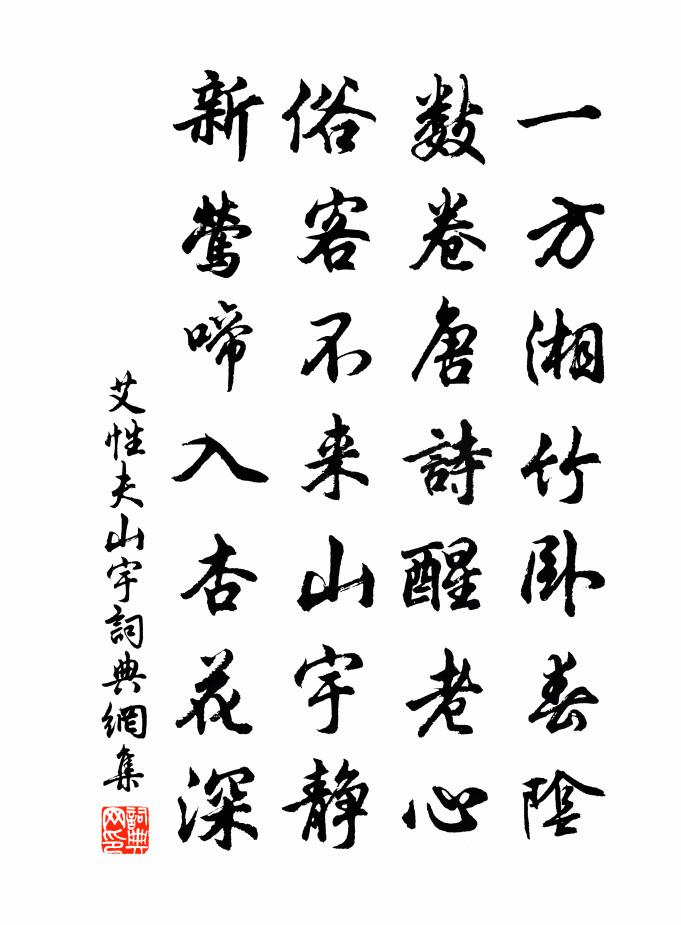 一方湘竹卧春陰
数卷唐詩醒老心
俗客不来山宇静
新鶯啼入杏花深
艾性夫山宇詞典網集
詞典网印